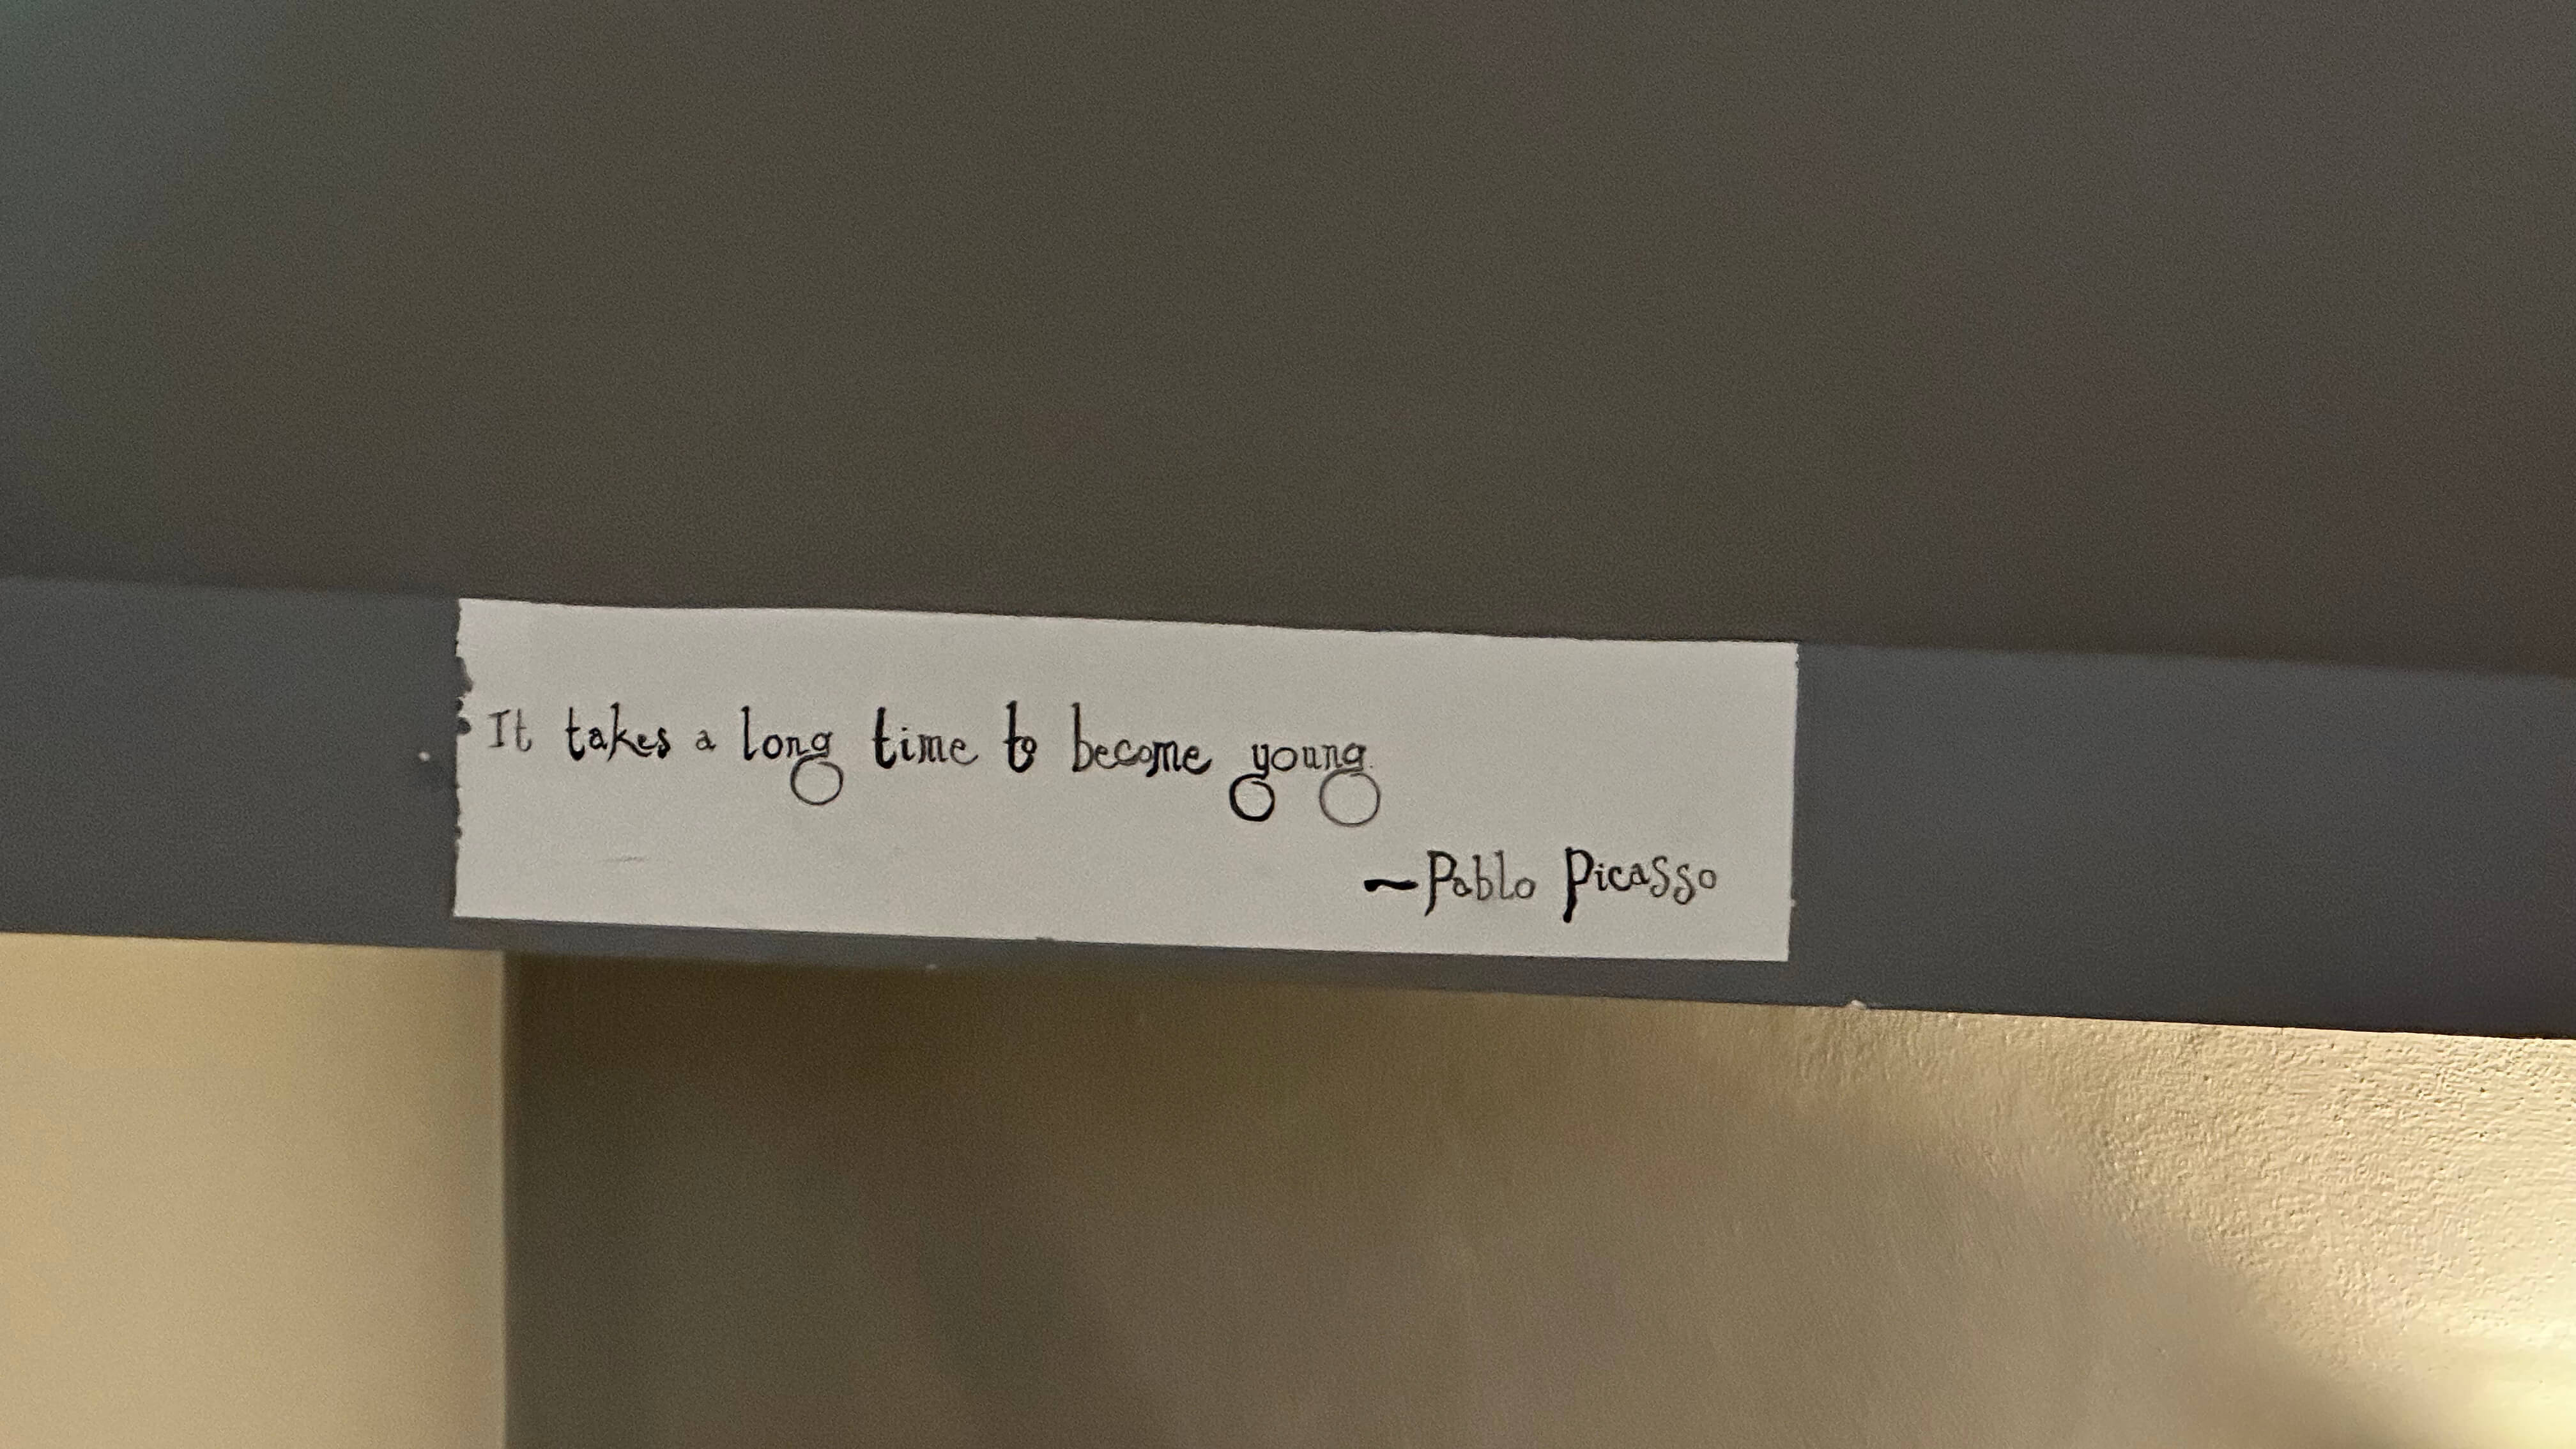 It takes a long time to become young.
~Pablo Picasso